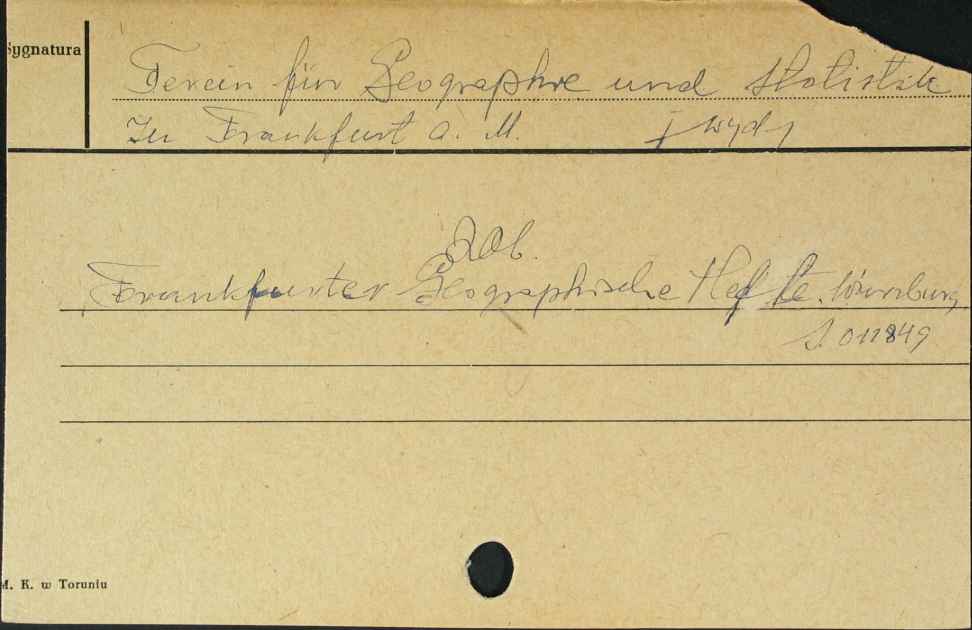 Sygnatura
Verein für Geographie und Statistik
zu Frankfurt a. M. [wyd]
Zob.
Frankfurter Geographische Hefte. Würzburg
S. 011849
M. K. w Toruniu